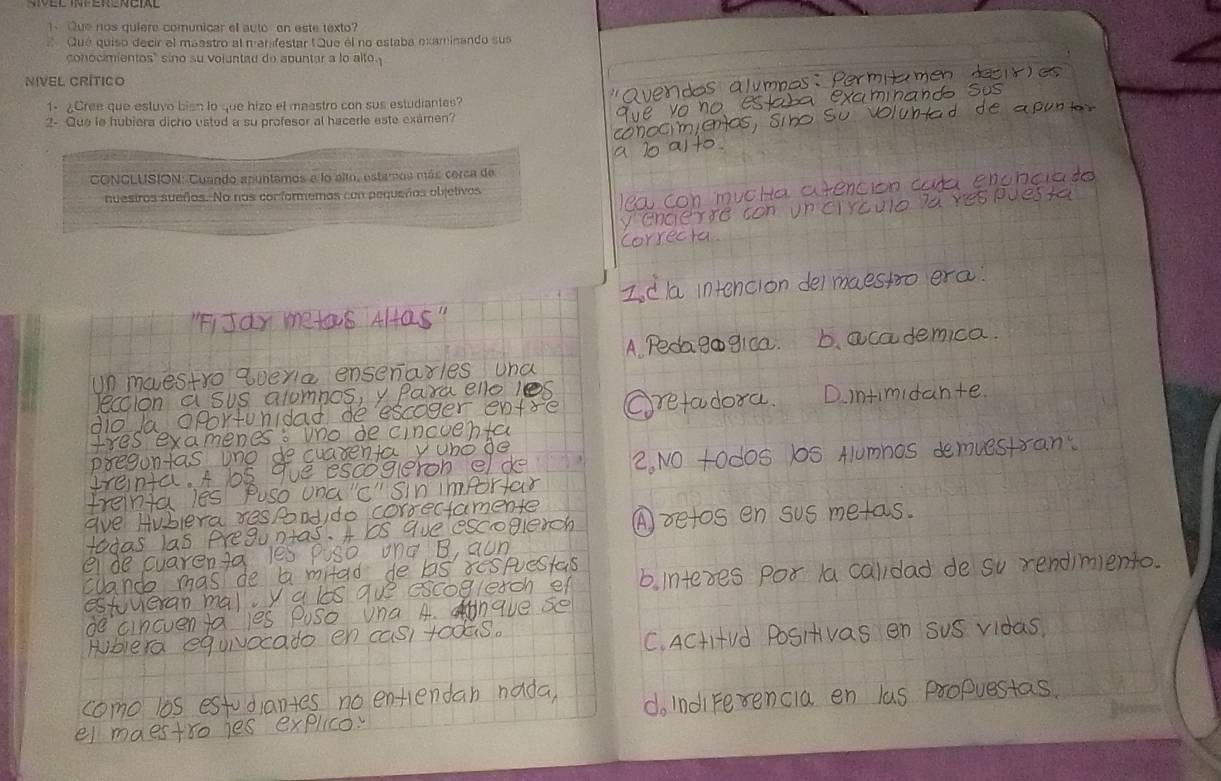 NIVEL INFERENCIAL
1- Que nos quiere comunicar el auto en este texto?
2- Qué quiso decir el maestro al manifestar "Que él no estaba examinando sus
conocimientos" sino su voluntad de apuntar a lo alto.
NIVEL CRÍTICO
1- ¿Cree que estuvo bien lo que hizo el maestro con sus estudiantes?
2- Que le hubiera dicho usted a su profesor al hacerle este exámen?
CONCLUSION: Cuando apuntamos a lo alto, estamos más cerca de
nuestros sueños. No nos conformemos con pequeños objetivos
"Fijar metas Altas"
un maestro queria enseñarles una
leccion a sus alumnos, y Para ello les
dio la oportunidad de escoger entre
tres examenes: uno de cincuenta
preguntas uno de cuarenta y uno de
treinta. A los que escogieron el de
treinta les Puso una "C" sin importar
que Hubiera respondido correctamente
todas las Preguntas. A los que escogieron
el de cuarenta les puso una B, aun
cuando mas de la mitad de las respuestas
estuvieran mal. y a los que escogieron el
de cincuenta les Puso una A. aunque se
Hubiera equivocado en casi todas.
como los estudiantes no entiendan nada,
el maestro les explico:
"quendos alumnos: Permitamen decirles
que yo no estaba examinando sus
conocimientos, sino su voluntad de apuntar
a lo alto.
lea con mucHa atencion cada enonciado
y encierre con un circulo la respuesta
correcta.
1. ¿la intencion del maestro era:
A. Pedagogica. b. academica.
C. retadora. D. intimidante.
2. No todos los Alumnos demuestran:
A retos en sus metas.
b. interes Por la calidad de su rendimiento.
C. Actitud Positivas en sus vidas.
d. indiferencia en las Propuestas.